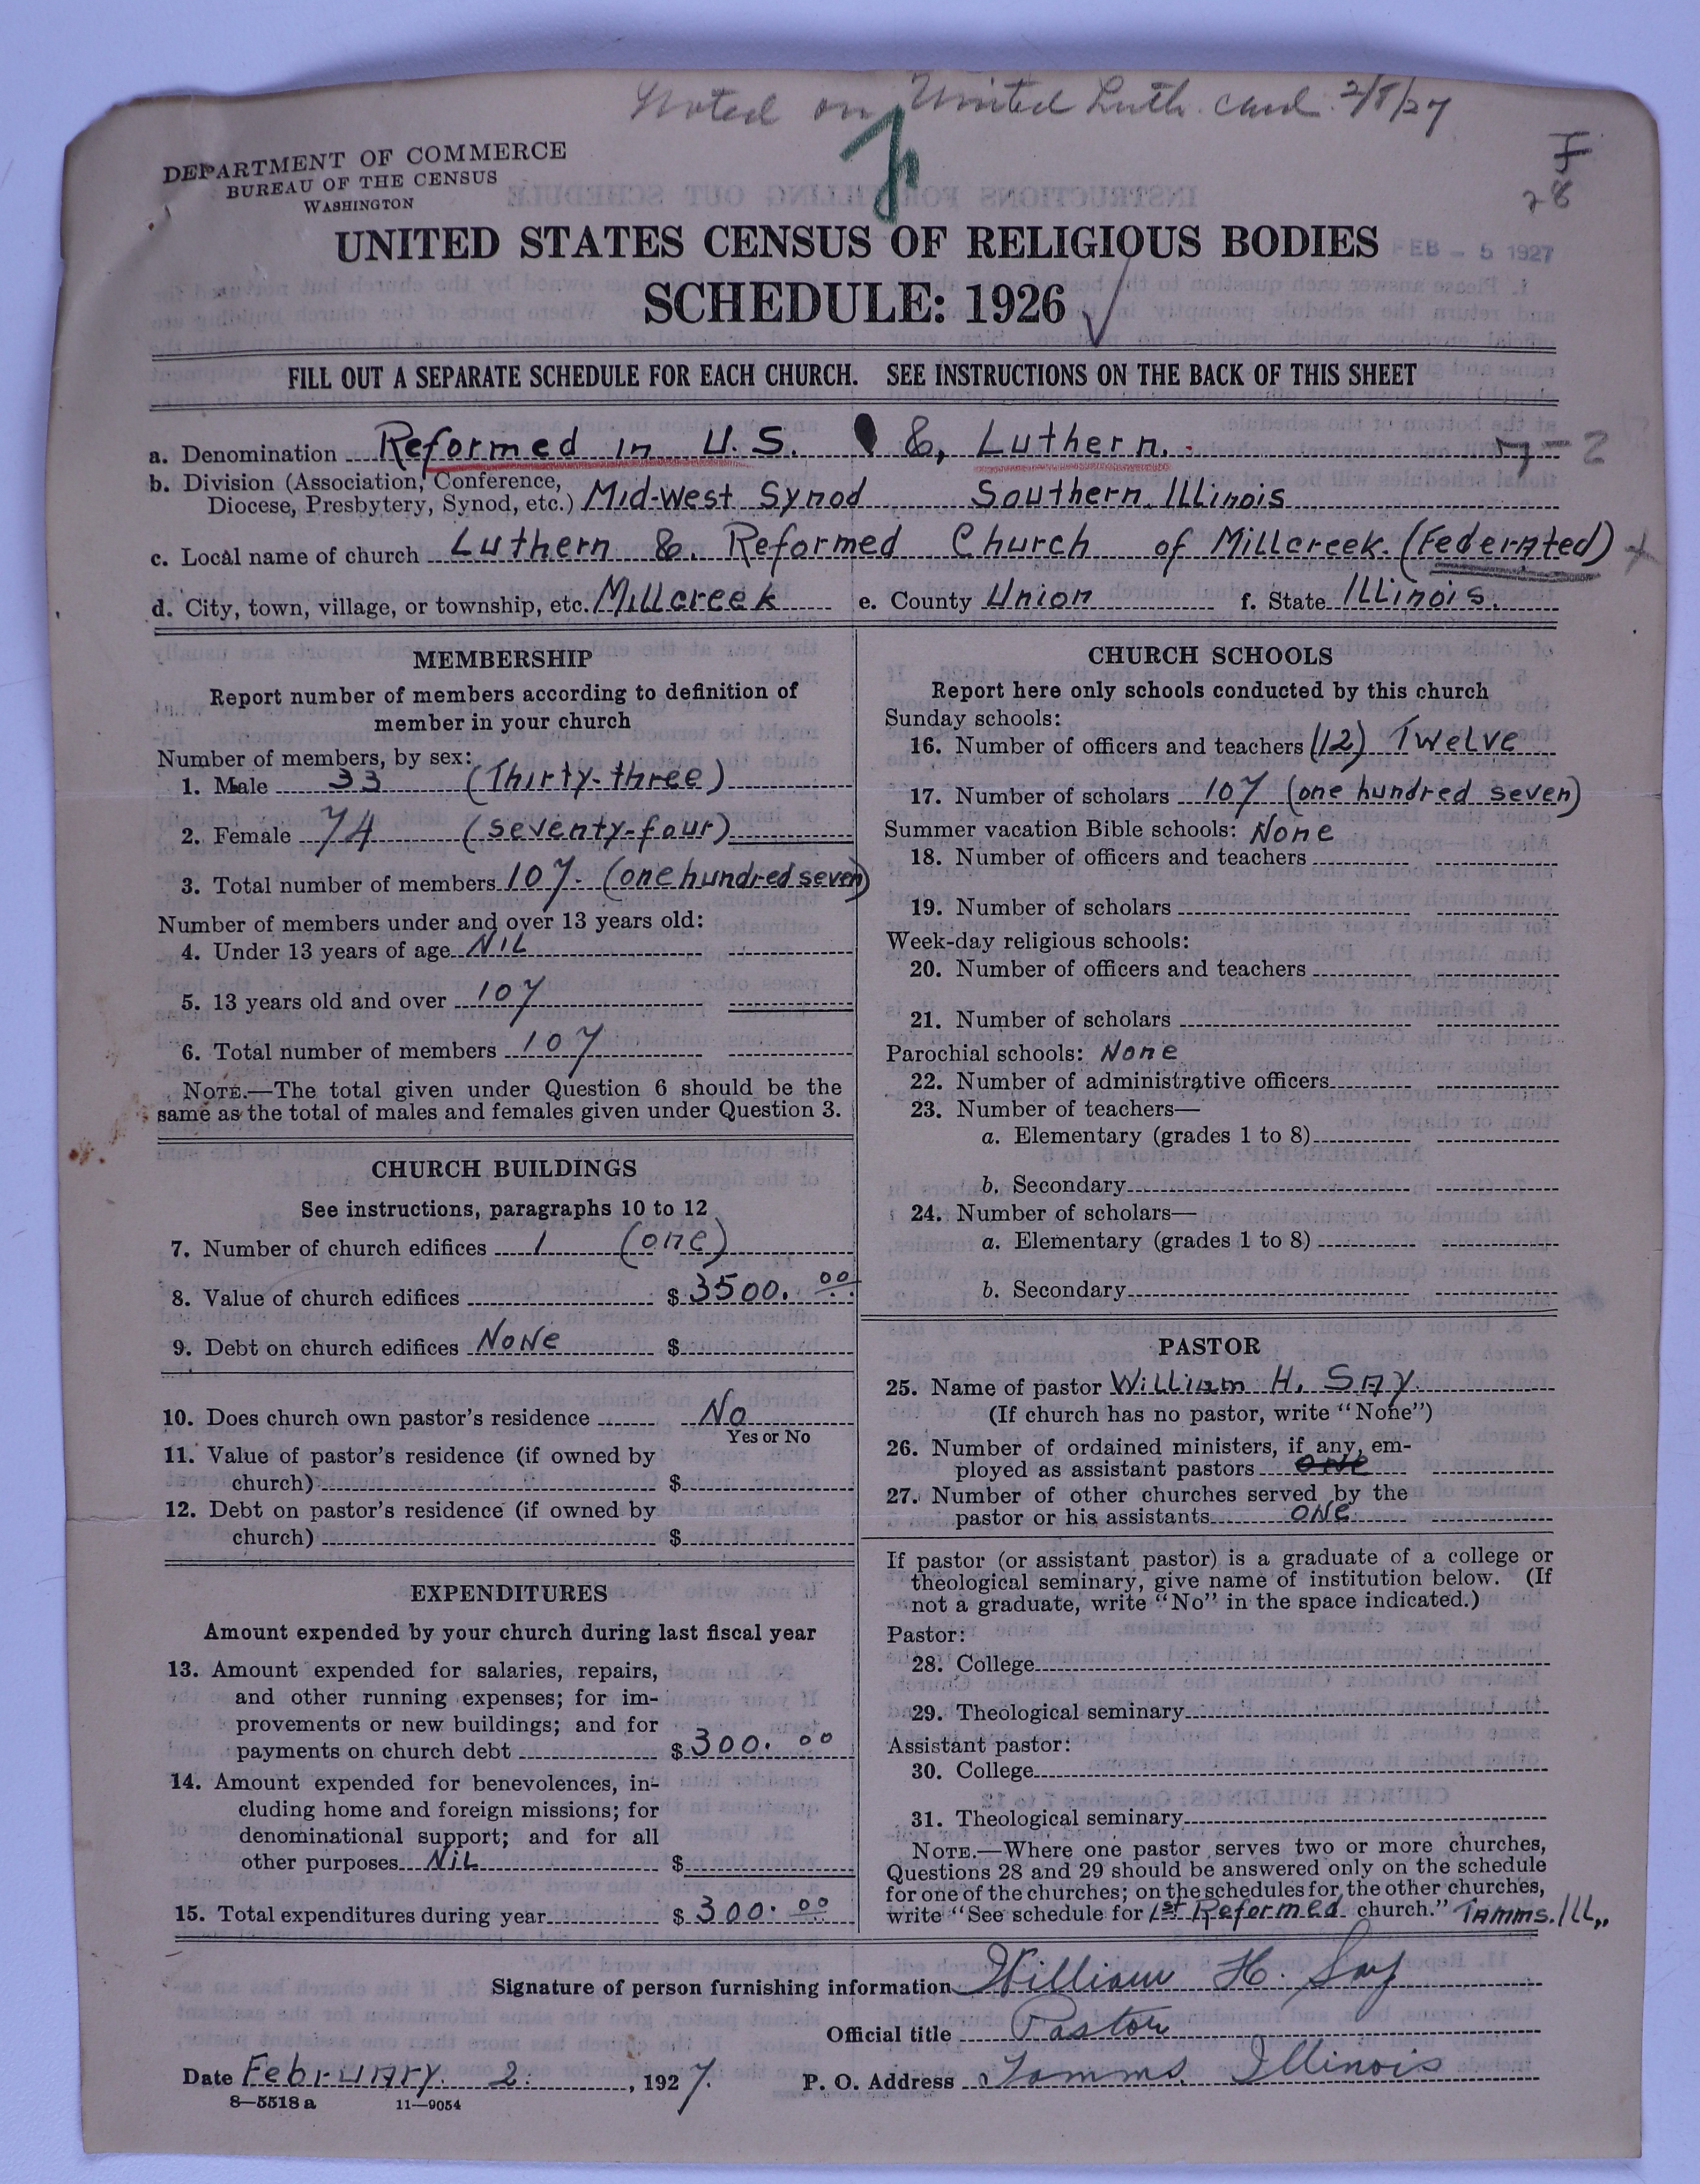 Noted on United Luth. card 2/8/27
DEPARTMENT OF COMMERCE
BUREAU OF THE CENSUS
WASHINGTON
28
UNITED STATES CENSUS OF RELIGIOUS BODIES
FEB - 5 1927
SCHEDULE: 1926
FILL OUT A SEPARATE SCHEDULE FOR EACH CHURCH. SEE INSTRUCTIONS ON THE BACK OF THIS SHEET
a. Denomination Reformed in U.S. &, Luthern.
b. Division (Association, Conference,
Diocese, Presbytery, Synod, etc.) Mid-West Synod Southern Illinois
c. Local name of church Luthern &. Reformed Church of Millcreek. (Federated)
d. City, town, village, or township, etc. Millcreek e. County Union f. State Illinois.
MEMBERSHIP
Report number of members according to definition of
member in your church
Number of members, by sex:
1. Male 33 (Thirty-three)
2. Female 74 (seventy-four)
3. Total number of members 107. (one hundred seven)
Number of members under and over 13 years old:
4. Under 13 years of age NIL
5. 13 years old and over 107
6. Total number of members 107
NOTE.—The total given under Question 6 should be the
same as the total of males and females given under Question 3.
CHURCH BUILDINGS
See instructions, paragraphs 10 to 12
7. Number of church edifices 1 (one)
8. Value of church edifices $ 3500. 00
9. Debt on church edifices None $
10. Does church own pastor's residence No
Yes or No
11. Value of pastor's residence (if owned by
church) $
12. Debt on pastor's residence (if owned by
church) $
EXPENDITURES
Amount expended by your church during last fiscal year
13. Amount expended for salaries, repairs,
and other running expenses; for im-
provements or new buildings; and for
payments on church debt $ 300. 00
14. Amount expended for benevolences, in-
cluding home and foreign missions; for
denominational support; and for all
other purposes NiL $
15. Total expenditures during year $ 300. 00
CHURCH SCHOOLS
Report here only schools conducted by this church
Sunday schools:
16. Number of officers and teachers (12) Twelve
17. Number of scholars 107 (one hundred seven)
Summer vacation Bible schools: None
18. Number of officers and teachers
19. Number of scholars
Week-day religious schools:
20. Number of officers and teachers
21. Number of scholars
Parochial schools: None
22. Number of administrative officers
23. Number of teachers—
a. Elementary (grades 1 to 8)
b. Secondary
24. Number of scholars—
a. Elementary (grades 1 to 8)
b. Secondary
PASTOR
25. Name of pastor William H. Say.
(If church has no pastor, write "None")
26. Number of ordained ministers, if any, em-
ployed as assistant pastors one
27. Number of other churches served by the
pastor or his assistants one
If pastor (or assistant pastor) is a graduate of a college or
theological seminary, give name of institution below. (If
not a graduate, write "No" in the space indicated.)
Pastor:
28. College
29. Theological seminary
Assistant pastor:
30. College
31. Theological seminary
NOTE.—Where one pastor serves two or more churches,
Questions 28 and 29 should be answered only on the schedule
for one of the churches; on the schedules for the other churches,
write "See schedule for 1st Reformed church." Tamms. Ill,,
Signature of person furnishing information William H. Say
Official title Pastor
Date February. 2. , 1927. P. O. Address Tamms. Illinois
8—5518 a 11—9054